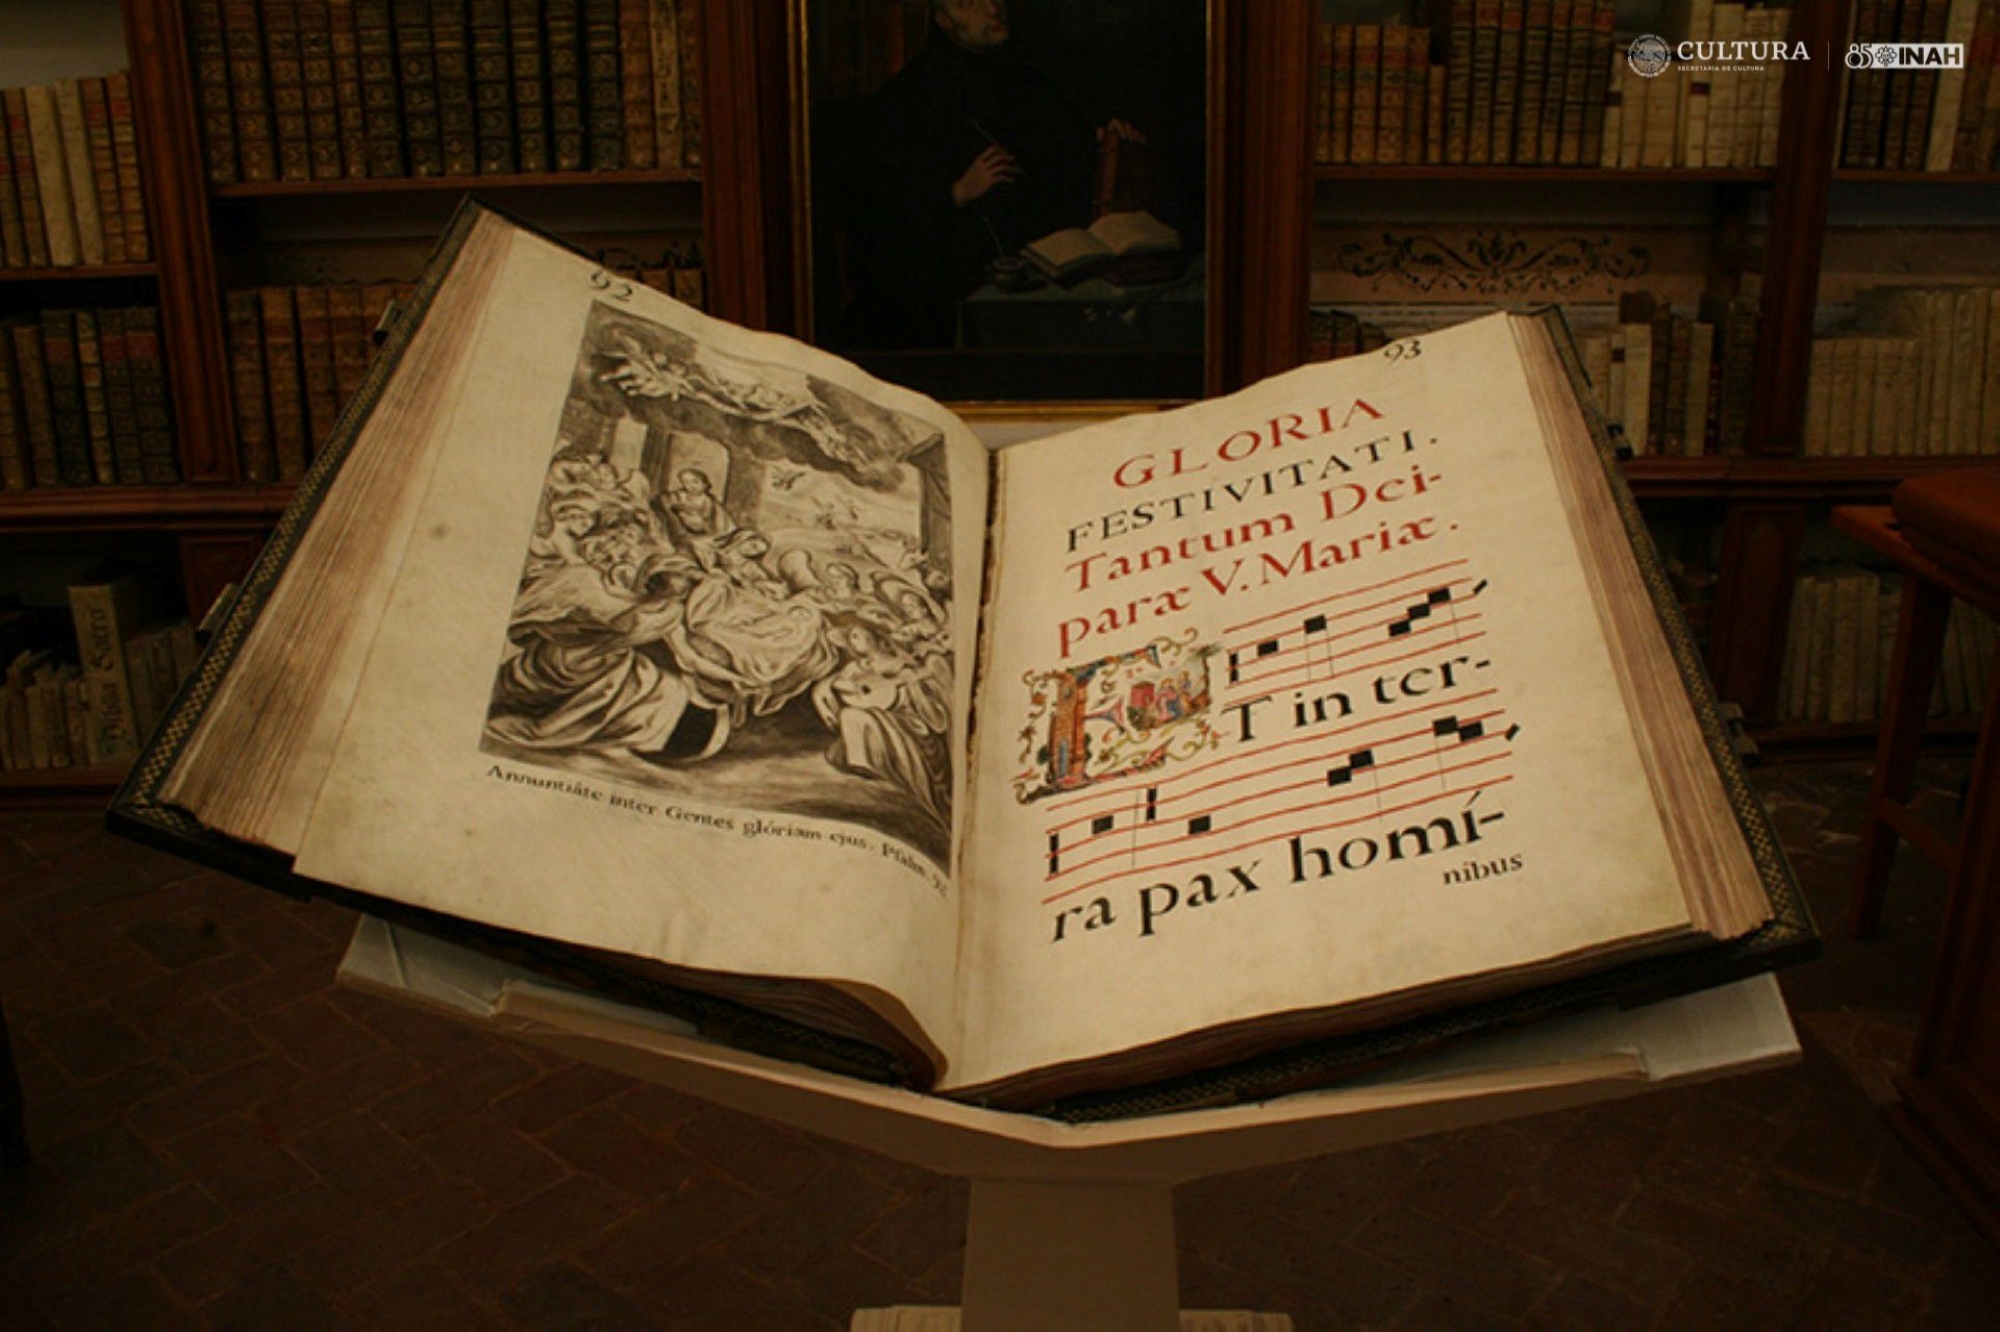 CULTURA
SECRETARÍA DE CULTURA
85 INAH
92
Annuntiáte inter Gentes glóriam ejus. Psalm. 95
93
GLORIA
FESTIVITATI.
Tantum Dei-
paræ V. Mariæ.
ET in ter-
ra pax homí-
nibus
Biblia Sacra